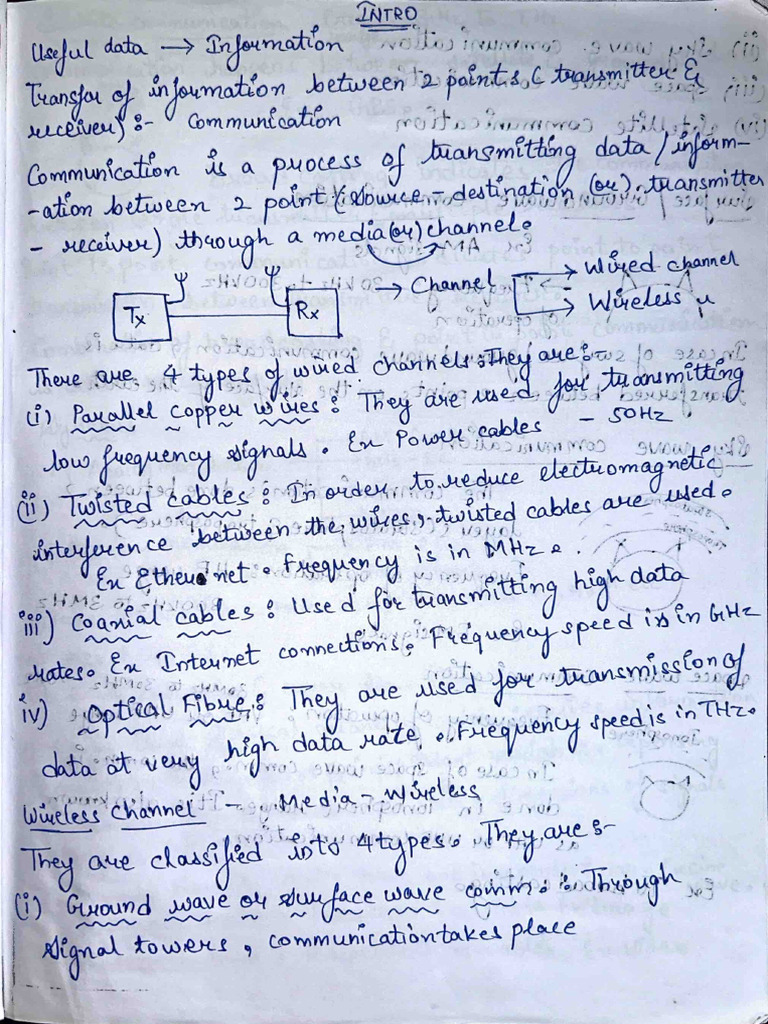 INTRO
Useful data → Information
Transfer of information between 2 points (transmitter &
receiver) :- Communication
Communication is a process of transmitting data/inform-
-ation between 2 point (source - destination (or) transmitter
- receiver) through a media (or) channel.
Tx Rx → Channel → Wired channel
→ Wireless "
There are 4 types of wired channels. They are :-
(i) Parallel copper wires : They are used for transmitting
low frequency signals. Ex Power cables - 50Hz
(ii) Twisted cables : In order to reduce electromagnetic
interference between the wires, twisted cables are used.
Ex Ethernet. Frequency is in MHz.
iii) Coaxial cables : Used for transmitting high data
rates. Ex Internet connections. Frequency speed is in GHz
iv) Optical Fibre : They are used for transmission of
data at very high data rate. Frequency speed is in THz.
Wireless Channel - Media - Wireless
They are classified into 4 types. They are :-
(i) Ground wave or surface wave comm. : Through
signal towers, communication takes place